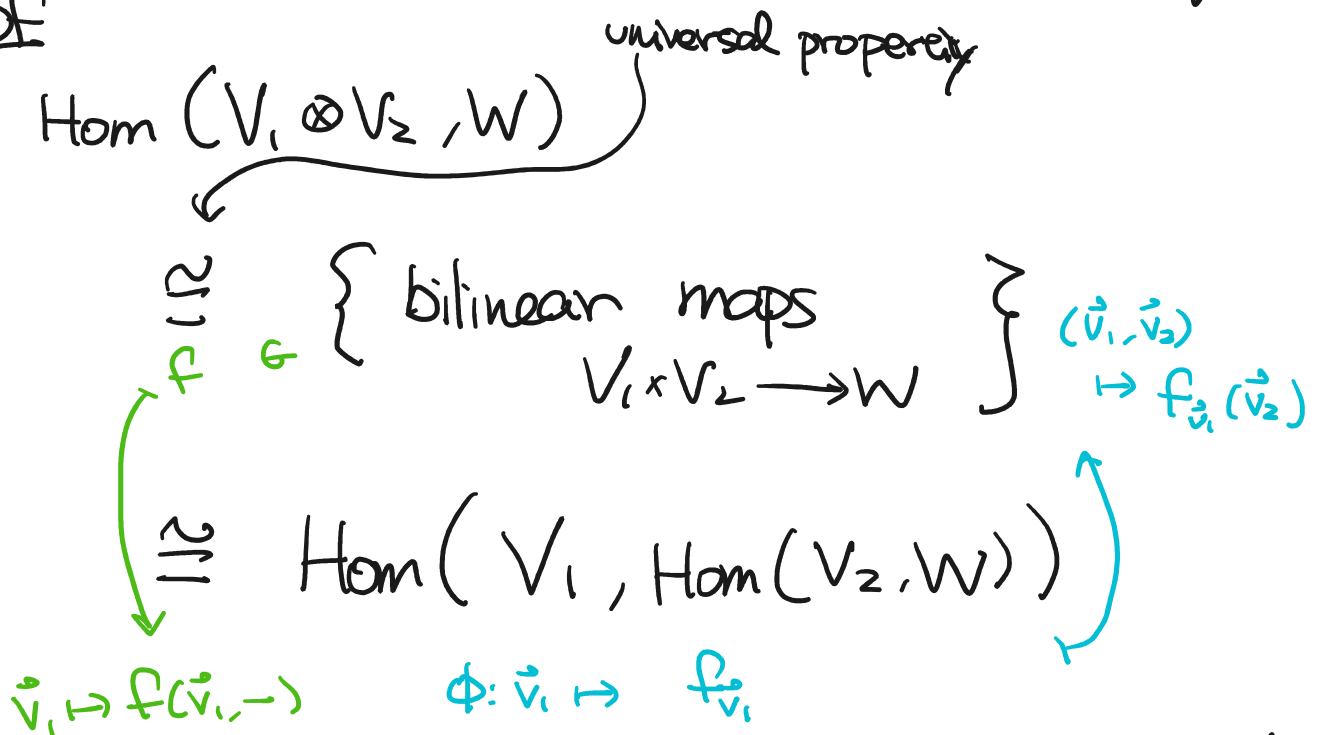 universal properety
Hom (V₁ ⊗ V₂, W)
≅ { bilinear maps
V₁ × V₂ ⟶ W }
f ∈
(v⃗₁, v⃗₂)
↦ f_{v⃗₁}(v⃗₂)
≅ Hom( V₁, Hom(V₂, W))
v⃗₁ ↦ f(v⃗₁, −)
ϕ: v⃗₁ ↦ f_{v⃗₁}